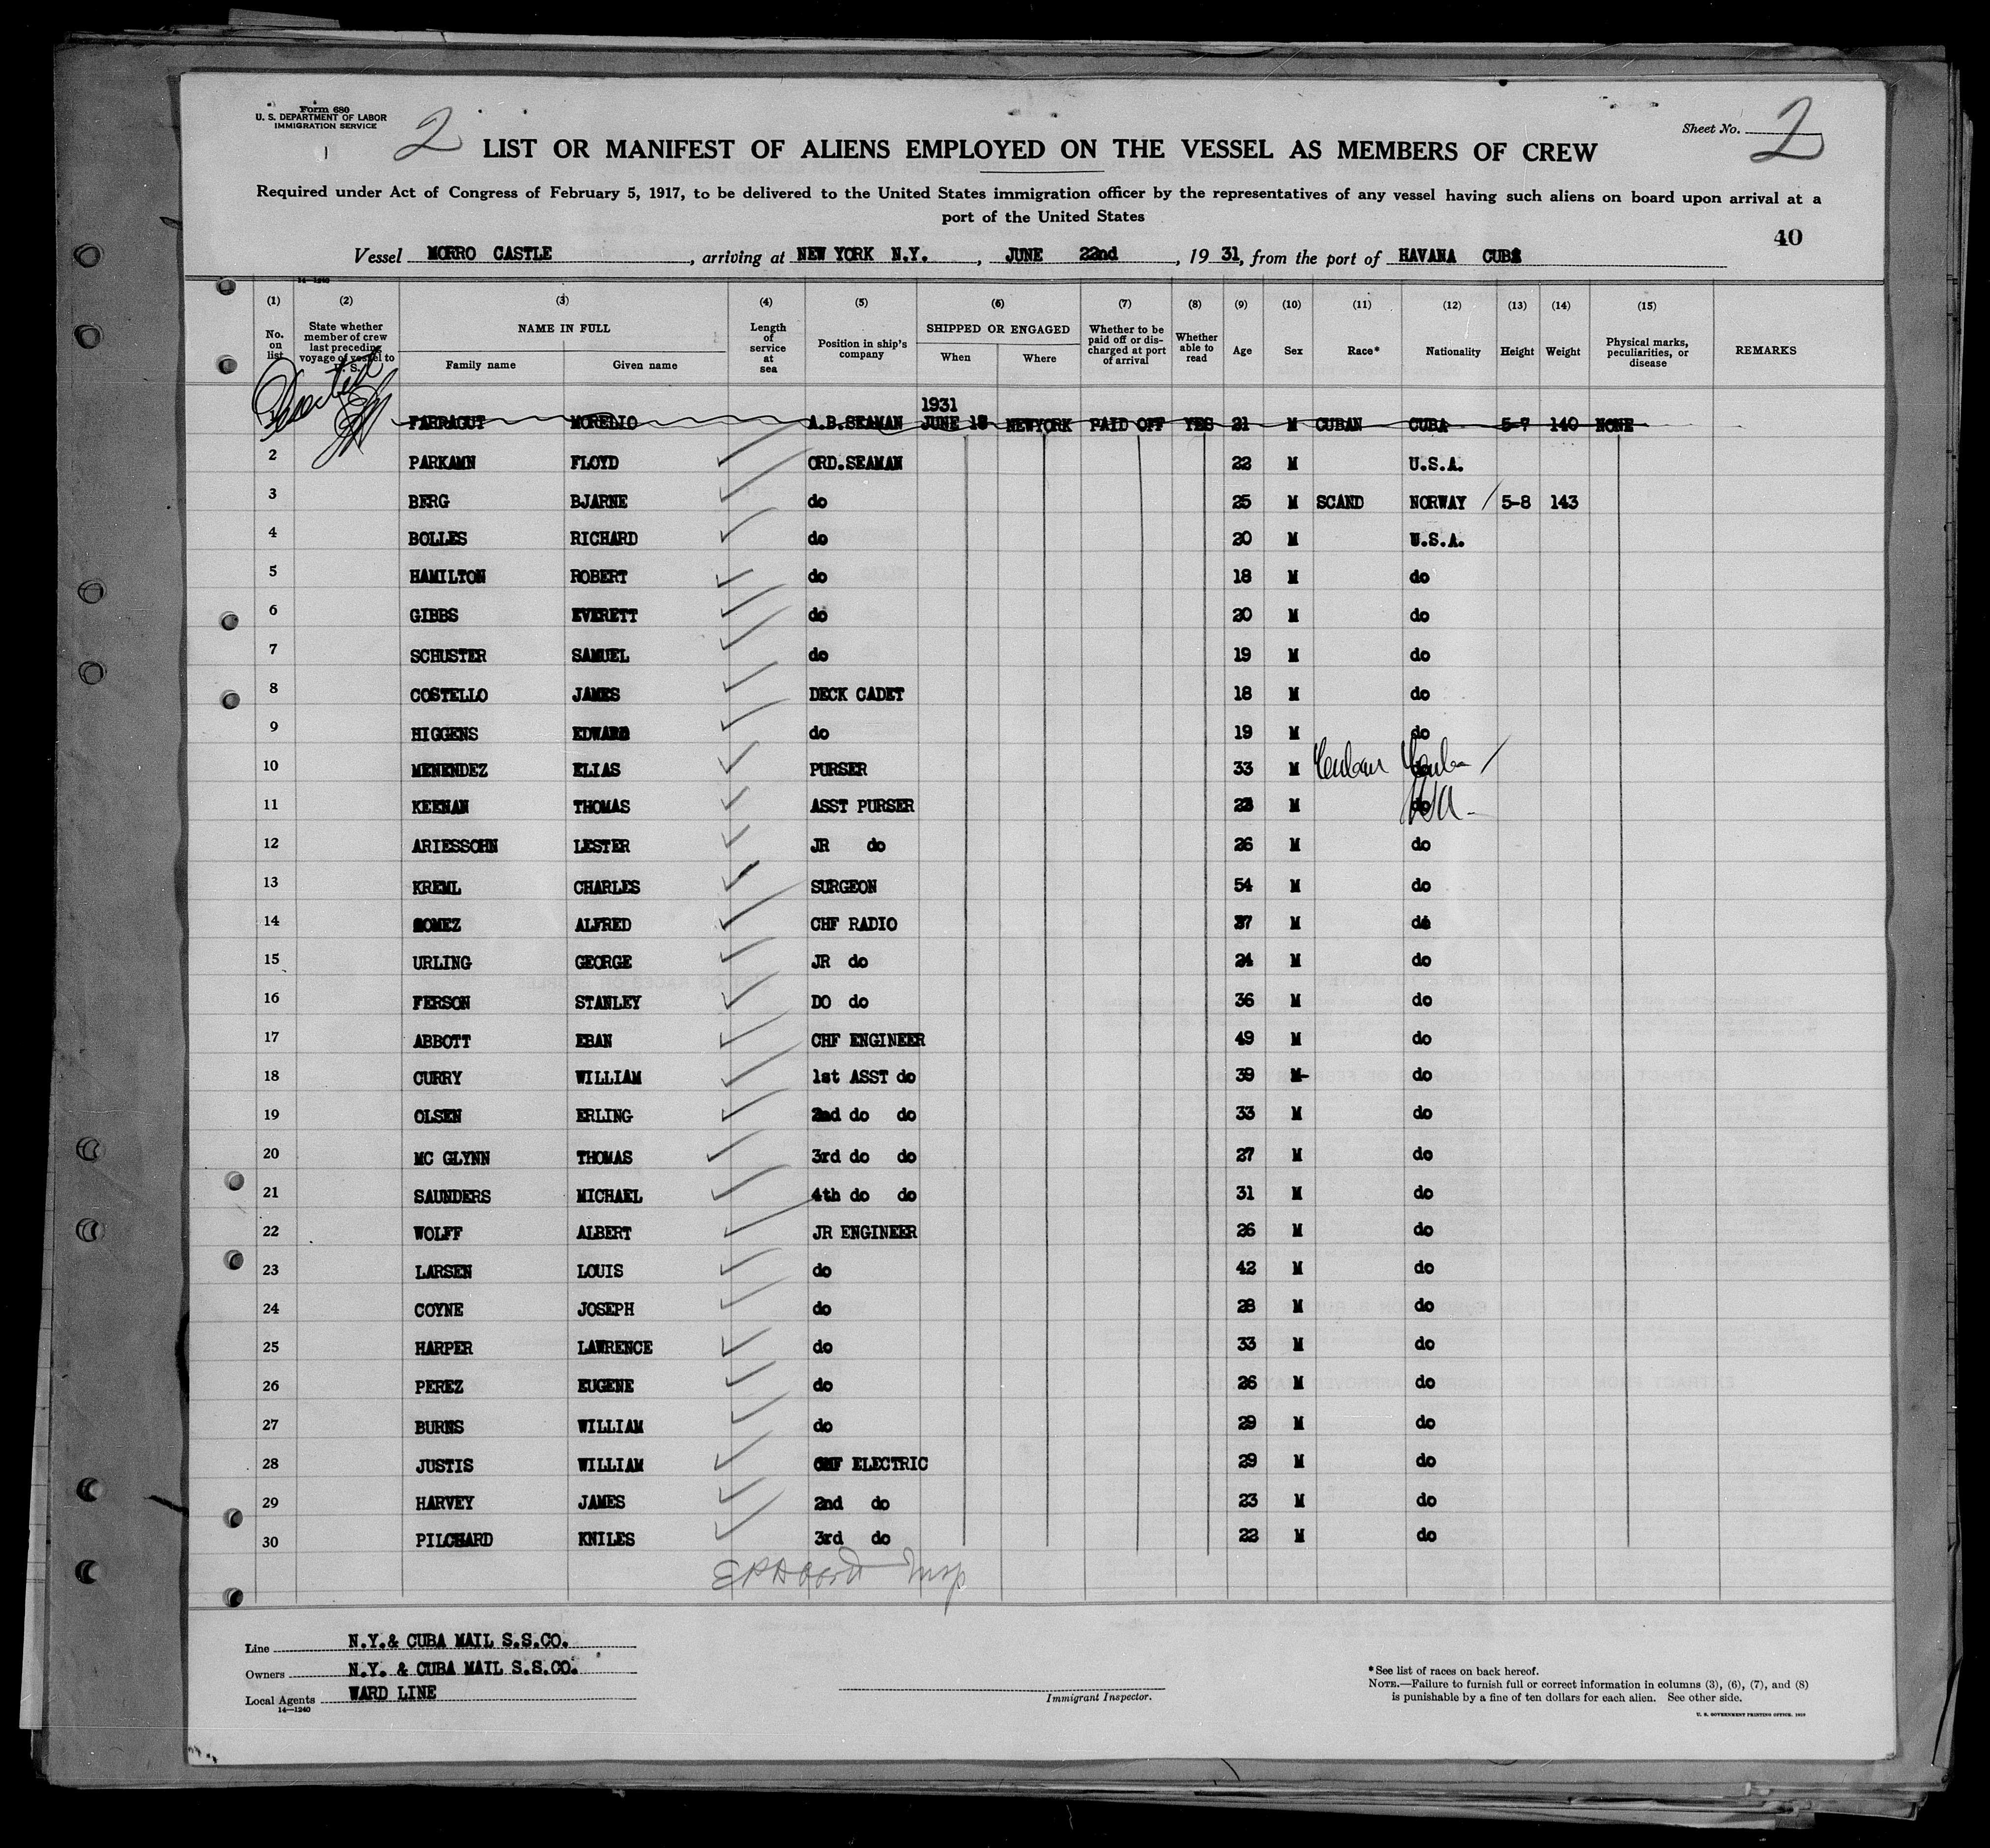 Form 680
U. S. DEPARTMENT OF LABOR
IMMIGRATION SERVICE
2
LIST OR MANIFEST OF ALIENS EMPLOYED ON THE VESSEL AS MEMBERS OF CREW
Sheet No. 2
Required under Act of Congress of February 5, 1917, to be delivered to the United States immigration officer by the representatives of any vessel having such aliens on board upon arrival at a
port of the United States
40
Vessel MORRO CASTLE, arriving at NEW YORK N.Y., JUNE 22nd, 19 31, from the port of HAVANA CUBA
14-1240
(1) (2) (3) (4) (5) (6) (7) (8) (9) (10) (11) (12) (13) (14) (15)
No. on list State whether member of crew last preceding voyage of vessel to U. S. NAME IN FULL Family name Given name Length of service at sea Position in ship's company SHIPPED OR ENGAGED When Where Whether to be paid off or discharged at port of arrival Whether able to read Age Sex Race* Nationality Height Weight Physical marks, peculiarities, or disease REMARKS
Deserted
1931
FARRAGUT MORELIO A.B.SEAMAN JUNE 18 NEWYORK PAID OFF YES 21 M CUBAN CUBA 5-7 140 NONE
2 PARKAMN FLOYD ORD.SEAMAN 22 M U.S.A.
3 BERG BJARNE do 25 M SCAND NORWAY / 5-8 143
4 BOLLES RICHARD do 20 M U.S.A.
5 HAMILTON ROBERT do 18 M do
6 GIBBS EVERETT do 20 M do
7 SCHUSTER SAMUEL do 19 M do
8 COSTELLO JAMES DECK CADET 18 M do
9 HIGGENS EDWARD do 19 M do
10 MENENDEZ ELIAS PURSER 33 M Cuban Cuba /
11 KEENAN THOMAS ASST PURSER 23 M USA -
12 ARIESSOHN LESTER JR do 26 M do
13 KREML CHARLES SURGEON 54 M do
14 GOMEZ ALFRED CHF RADIO 37 M do
15 URLING GEORGE JR do 24 M do
16 FERSON STANLEY DO do 36 M do
17 ABBOTT EBAN CHF ENGINEER 49 M do
18 CURRY WILLIAM 1st ASST do 39 M do
19 OLSEN ERLING 2nd do do 33 M do
20 MC GLYNN THOMAS 3rd do do 27 M do
21 SAUNDERS MICHAEL 4th do do 31 M do
22 WOLFF ALBERT JR ENGINEER 26 M do
23 LARSEN LOUIS do 42 M do
24 COYNE JOSEPH do 28 M do
25 HARPER LAWRENCE do 33 M do
26 PEREZ EUGENE do 26 M do
27 BURNS WILLIAM do 29 M do
28 JUSTIS WILLIAM CHF ELECTRIC 29 M do
29 HARVEY JAMES 2nd do 23 M do
30 PILCHARD KNILES 3rd do 22 M do
Insp
Line N.Y.& CUBA MAIL S.S.CO.
Owners N.Y. & CUBA MAIL S.S.CO.
Local Agents WARD LINE
14—1240
Immigrant Inspector.
*See list of races on back hereof.
NOTE.—Failure to furnish full or correct information in columns (3), (6), (7), and (8)
is punishable by a fine of ten dollars for each alien. See other side.
U. S. GOVERNMENT PRINTING OFFICE: 1929